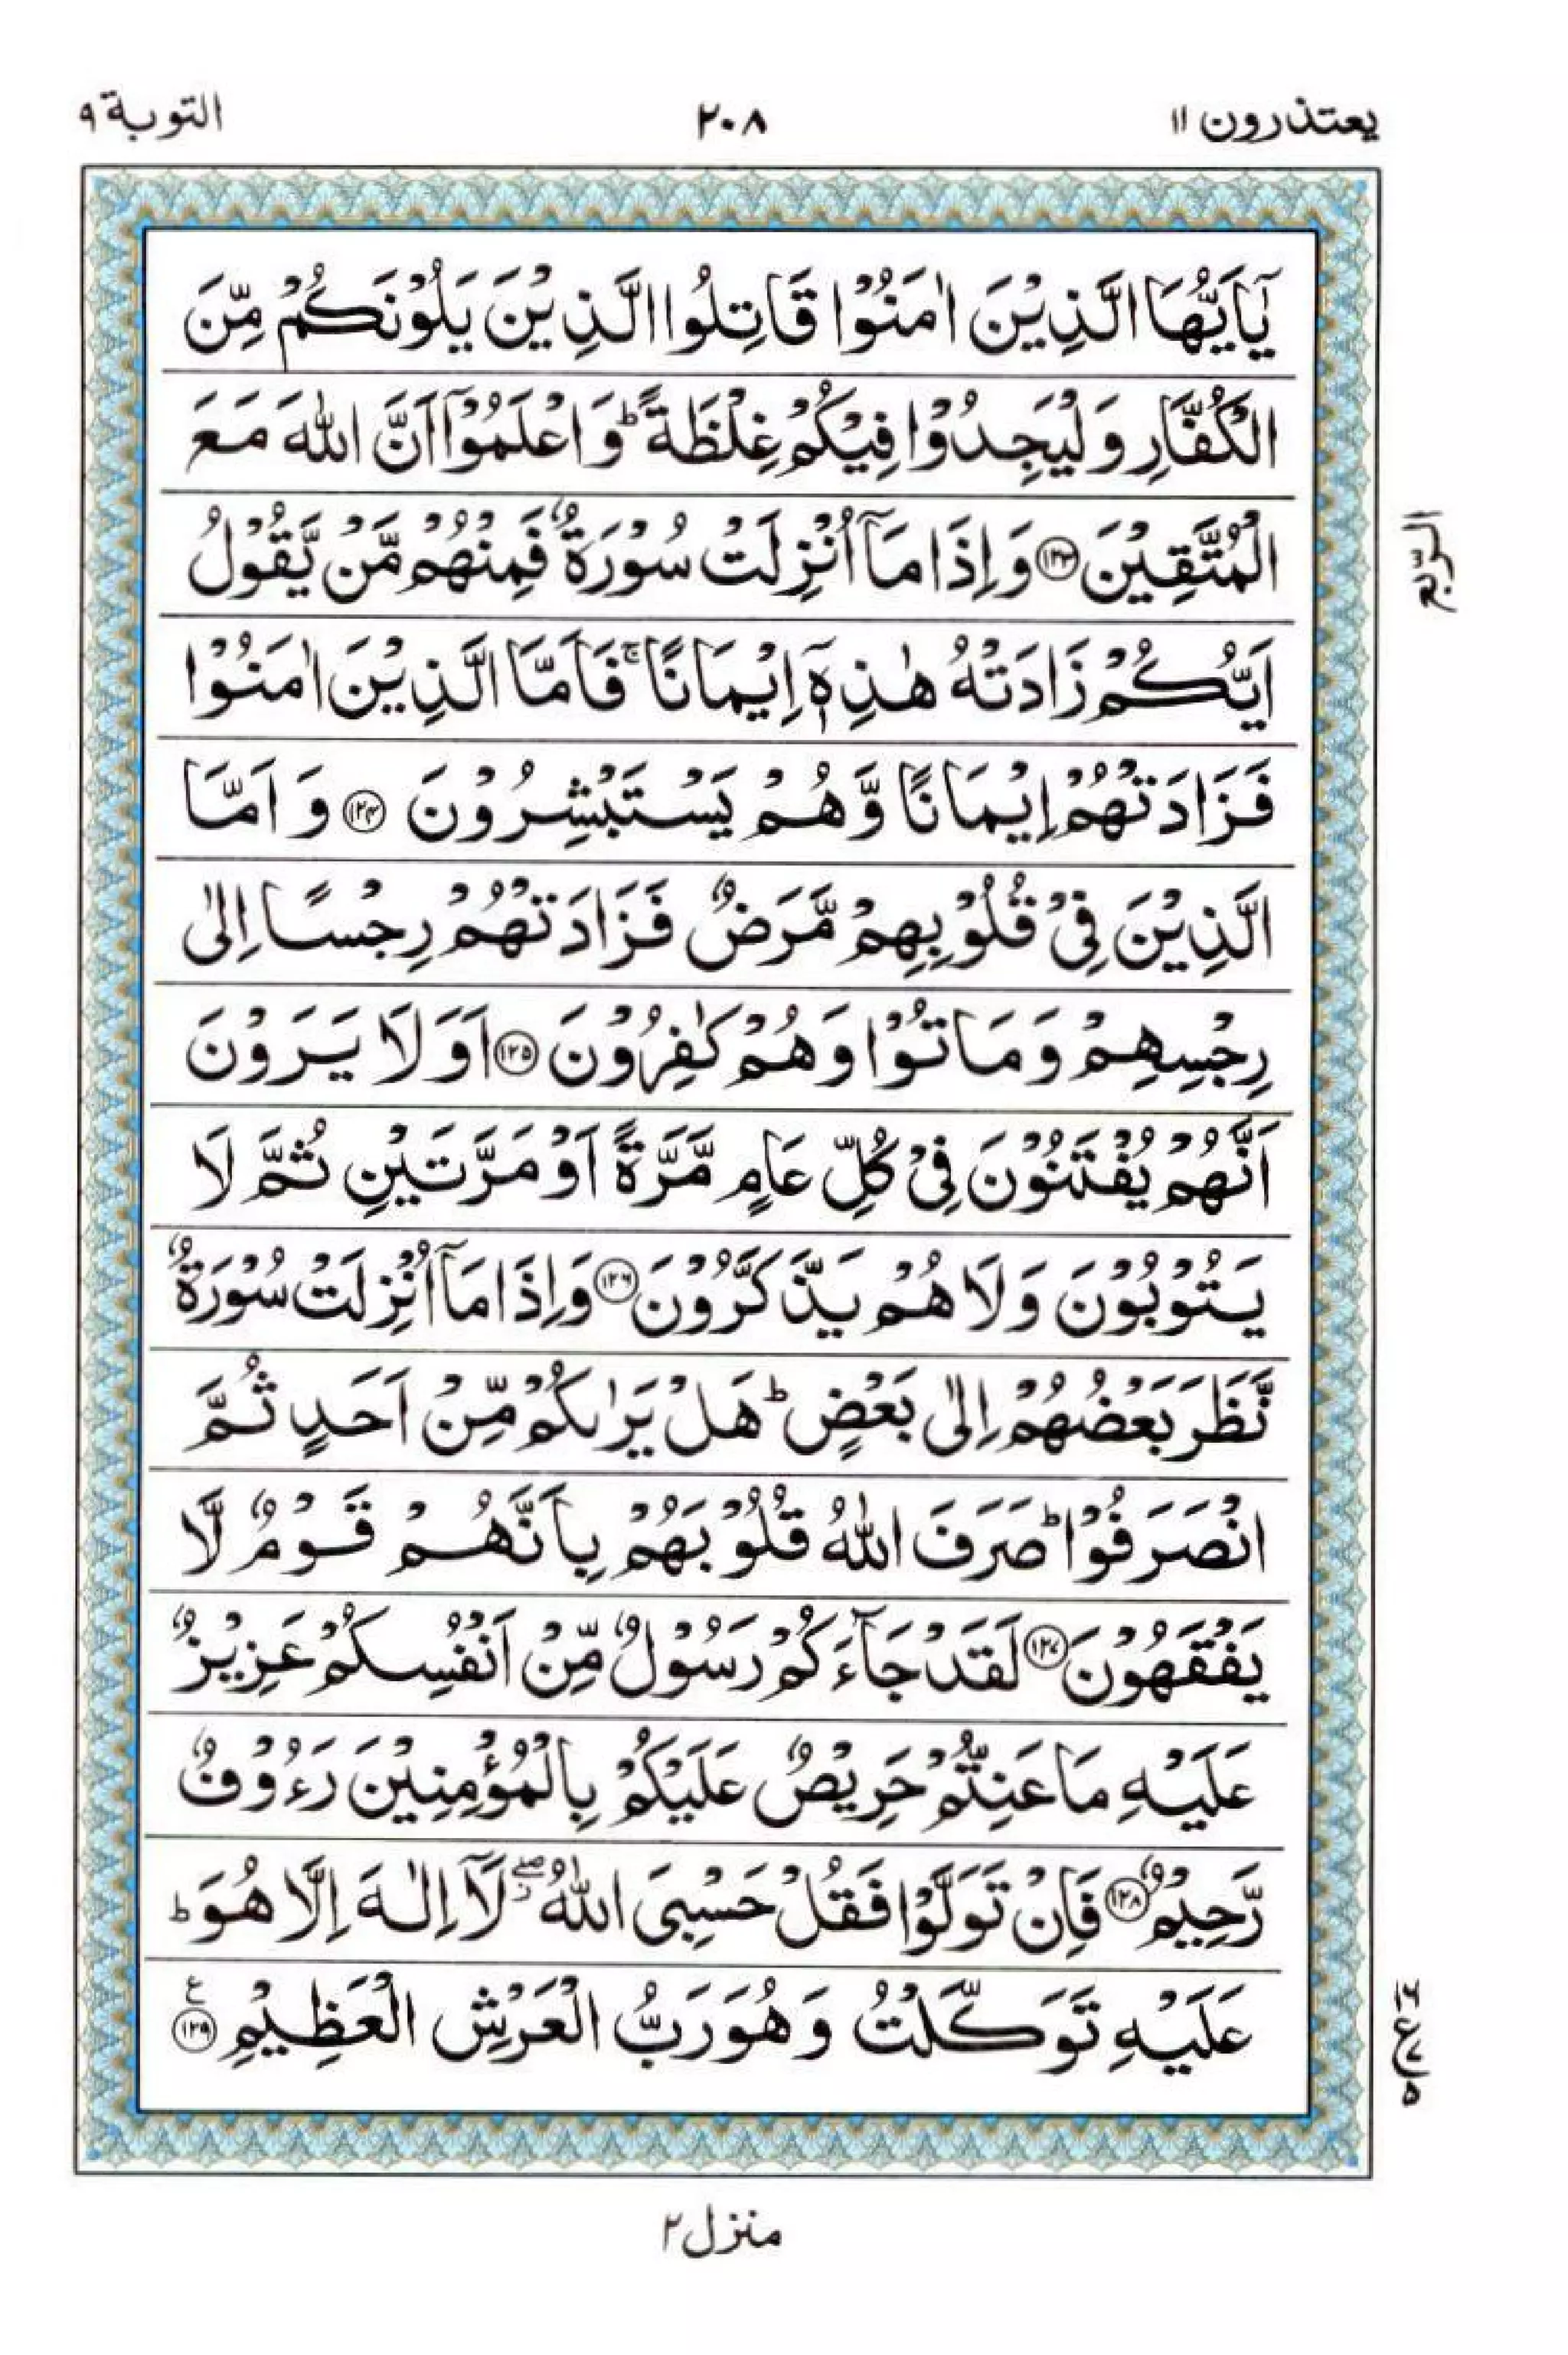 يعتذرون ١١
٢٠٨
التوبة ٩
يٰٓاَيُّهَا الَّذِيْنَ اٰمَنُوْا قَاتِلُوا الَّذِيْنَ يَلُوْنَكُمْ مِّنَ
الْكُفَّارِ وَلْيَجِدُوْا فِيْكُمْ غِلْظَةً ؕ وَاعْلَمُوْۤا اَنَّ اللّٰهَ مَعَ
الْمُتَّقِيْنَ ﴿۱۲۳﴾ وَاِذَا مَاۤ اُنْزِلَتْ سُوْرَةٌ فَمِنْهُمْ مَّنْ يَّقُوْلُ
اَيُّكُمْ زَادَتْهُ هٰذِهٖۤ اِيْمَانًا ۚ فَاَمَّا الَّذِيْنَ اٰمَنُوْا
فَزَادَتْهُمْ اِيْمَانًا وَّهُمْ يَسْتَبْشِرُوْنَ ﴿۱۲۴﴾ وَاَمَّا
الَّذِيْنَ فِيْ قُلُوْبِهِمْ مَّرَضٌ فَزَادَتْهُمْ رِجْسًا اِلٰى
رِجْسِهِمْ وَمَاتُوْا وَهُمْ كٰفِرُوْنَ ﴿۱۲۵﴾ اَوَلَا يَرَوْنَ
اَنَّهُمْ يُفْتَنُوْنَ فِيْ كُلِّ عَامٍ مَّرَّةً اَوْ مَرَّتَيْنِ ثُمَّ لَا
يَتُوْبُوْنَ وَلَا هُمْ يَذَّكَّرُوْنَ ﴿۱۲۶﴾ وَاِذَا مَاۤ اُنْزِلَتْ سُوْرَةٌ
نَّظَرَ بَعْضُهُمْ اِلٰى بَعْضٍ ؕ هَلْ يَرٰىكُمْ مِّنْ اَحَدٍ ثُمَّ
انْصَرَفُوْا ؕ صَرَفَ اللّٰهُ قُلُوْبَهُمْ بِاَنَّهُمْ قَوْمٌ لَّا
يَفْقَهُوْنَ ﴿۱۲۷﴾ لَقَدْ جَآءَكُمْ رَسُوْلٌ مِّنْ اَنْفُسِكُمْ عَزِيْزٌ
عَلَيْهِ مَا عَنِتُّمْ حَرِيْصٌ عَلَيْكُمْ بِالْمُؤْمِنِيْنَ رَءُوْفٌ
رَّحِيْمٌ ﴿۱۲۸﴾ فَاِنْ تَوَلَّوْا فَقُلْ حَسْبِيَ اللّٰهُ ۖ لَاۤ اِلٰهَ اِلَّا هُوَ ؕ
عَلَيْهِ تَوَكَّلْتُ وَهُوَ رَبُّ الْعَرْشِ الْعَظِيْمِ ﴿۱۲۹﴾ ع
الربع
ع
منزل ٢